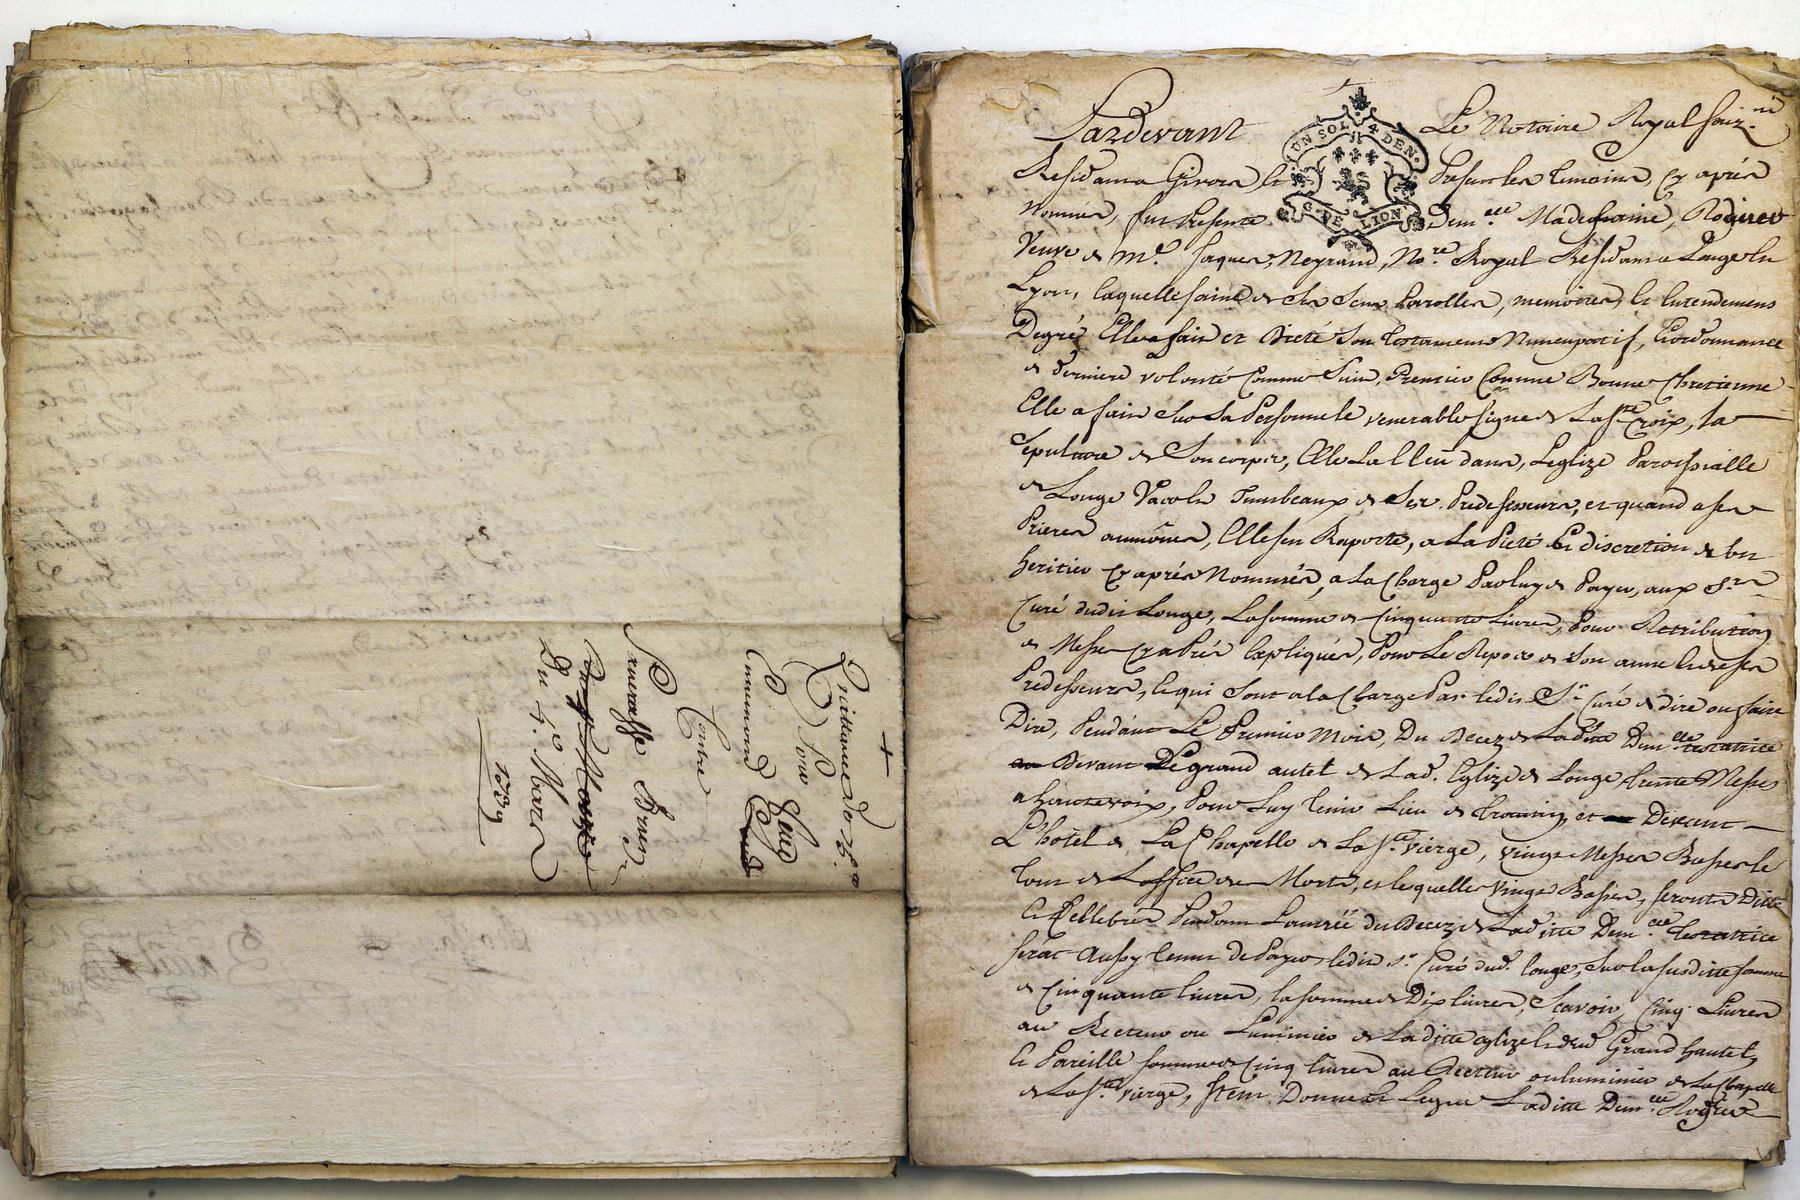 Quittance de 75.ᵗᵗ
Pour
Contre
Du 4.ᵉ Mars
1739
UN SOL 4 DEN.
G. DE LION
Pardevant Le Notoire Royal souz.né
Residant a Givors et Present les temoins, cy aprés
nommés, fut Presente Dem.elle Madeglaine, Rogiret
Veuve de M.e Jaques, Neyrand, No.re Royal Residant a Longe en
Lyon, laquelle saine de ses sens Parolles, memoires, et entendement
Degré Elle a fait et Dicté son testament Nuncupatif, Et ordonnance
de derniere volonté Comme suit, Premier Comme Bonne Chretienne
Elle a fait sur sa Personne le venerable signe de La Ste Croix, sa
sepulture de son corps, Elle La Eleu dans, Leglize Paroissialle
de Longe Vacoln tumbeaux de ses Predesseurs, et quand a ses
Prieres aumônes, Elle sen Raporte, a La Pieté Et discretion de son
heritier cy aprés Nommés, a La Charge Par luy de Payer, aux Sr
Curé dudit Longe, La somme de Cinquante Livres, Pour Retribution
de Messe cy aPrés Expliqués, Pour Le Repos de Son ame et de ses
Predesseurs, ce qui sont a la Charge Par ledit Sr Curé de dire ou faire
Dire, Pendant Le Premier Mois, Du Decez de Laditte Dem.elle testatrice
Devant Le grand autel de Lad. Eglize de Longe trente Messes
a haute voix, Pour Luy tenir Lieu de et Devant
L'hotel de La Chapelle de La Ste vierge, vingt Messes Basses le
tout de Loffice des Morts, et lesquelles vingt Basses, seront Ditte
Et Cellebrés Pendant Lannéé du Decez de Laditte Dem.elle testatrice
serat Aussy tenus de Payer ledit Sr Curé dud. longe, sur la susditte somme
de Cinquante livres, la somme de Dix livres, Scavoir, Cinq Livres
au Recteur ou Luminier de Laditte eglize et dud Grand hautel,
Et Pareille somme de Cinq livres au Recteur ou luminier de La Chapelle
de La Ste vierge, Item Donne et Legue Laditte Dem.elle Rogiret